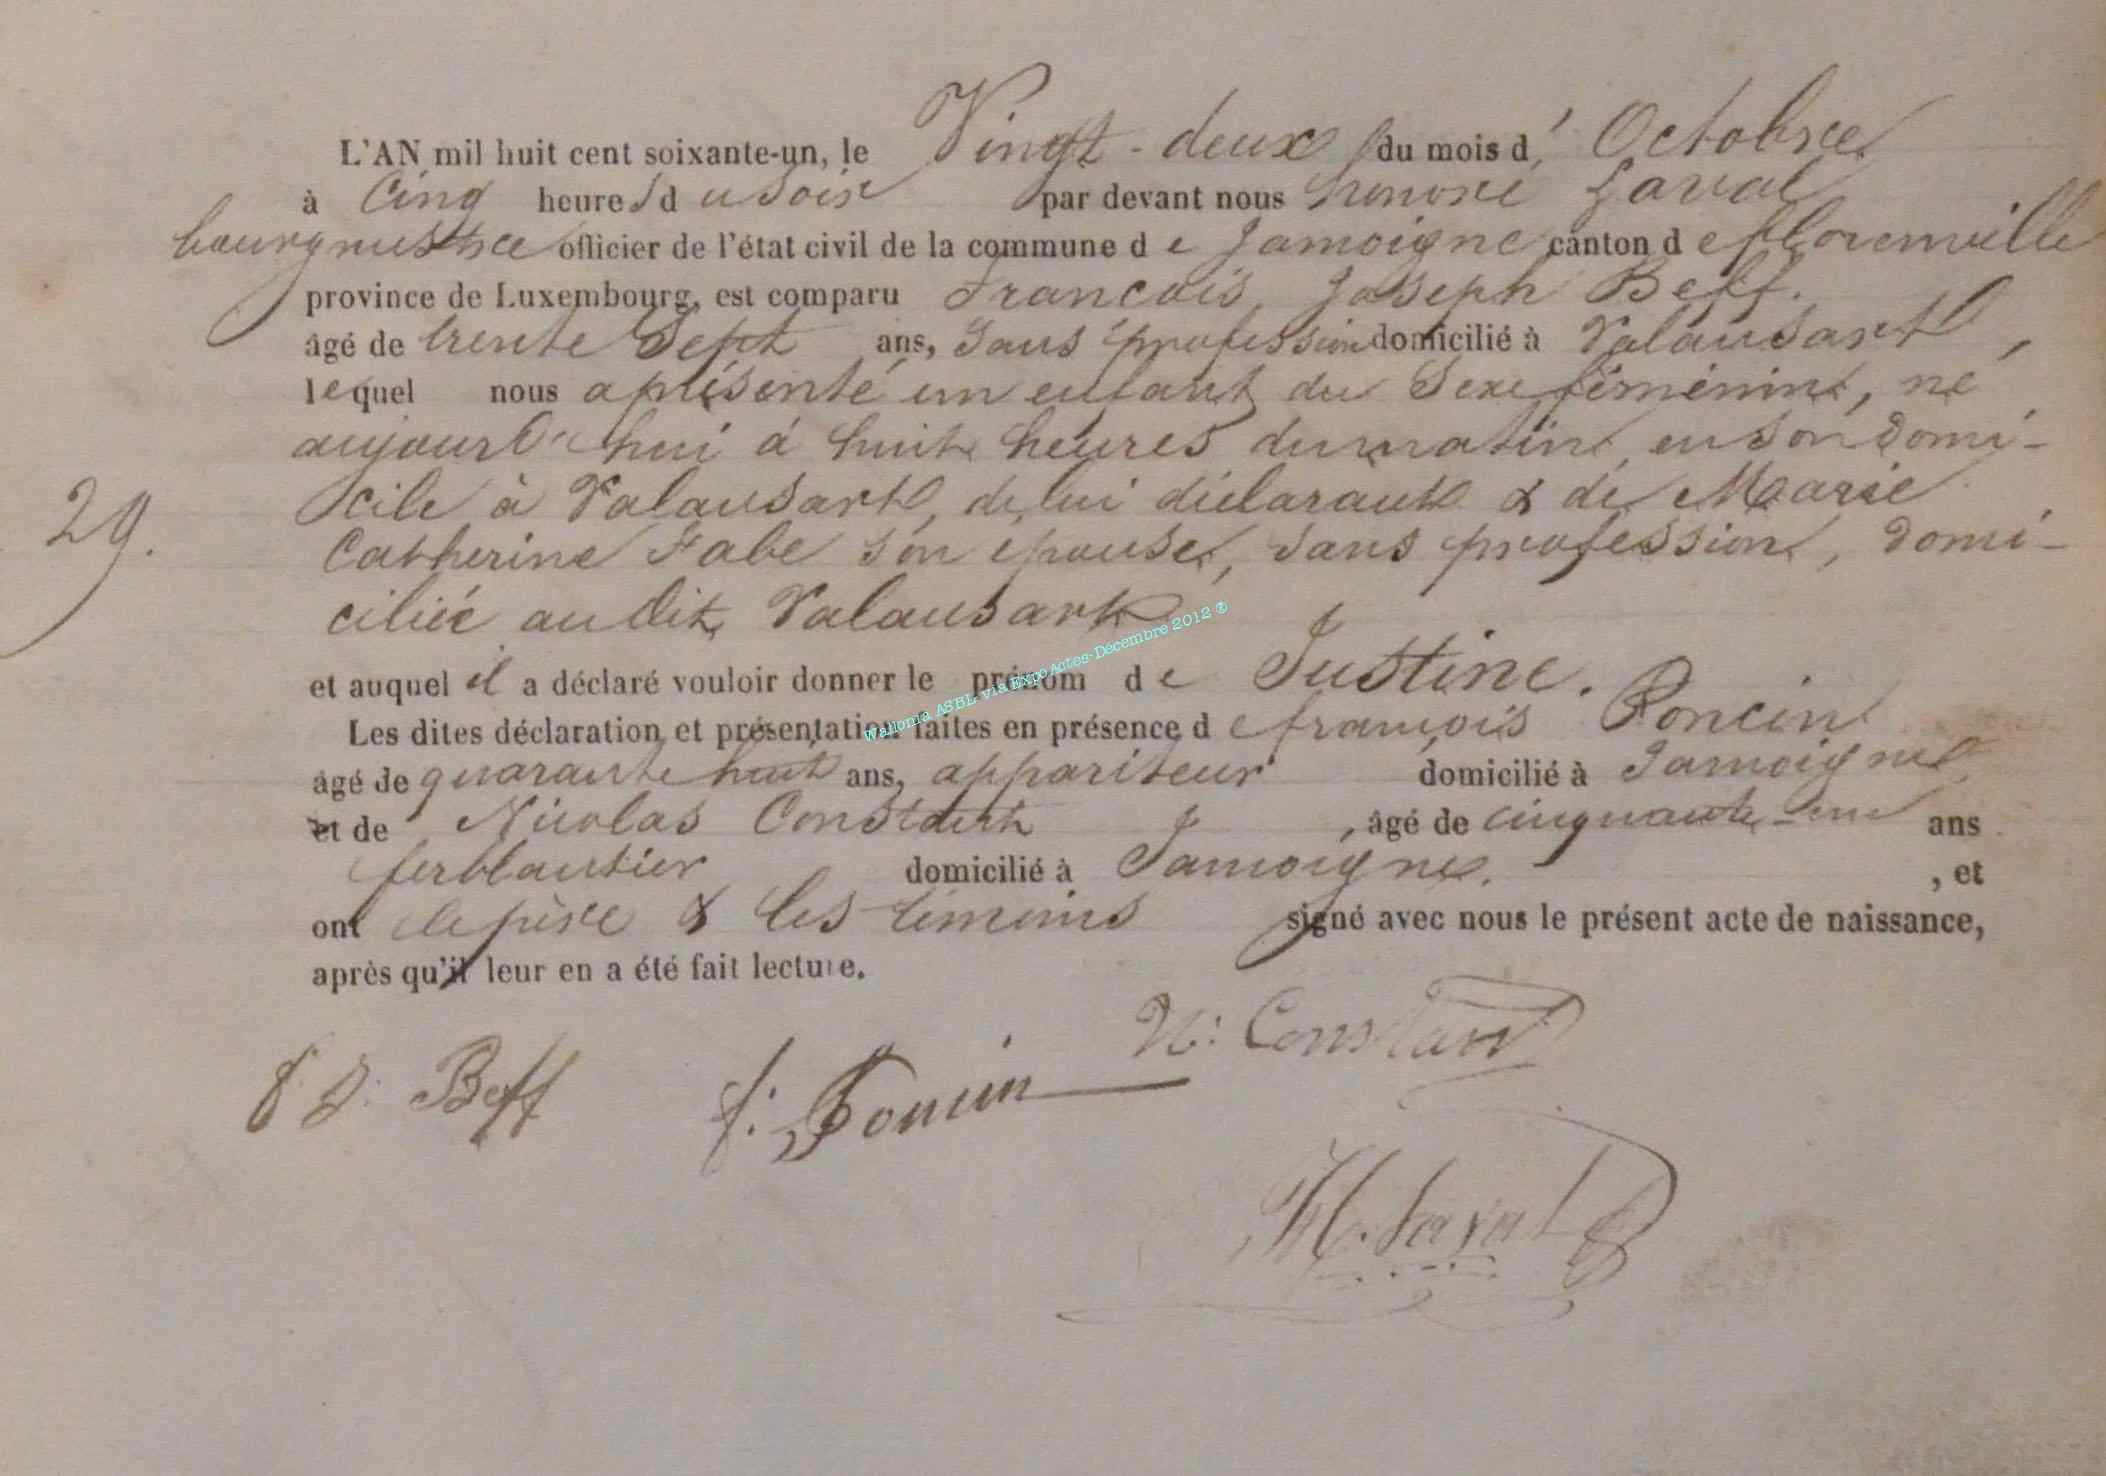 L'AN mil huit cent soixante-un, le Vingt-deux du mois d'Octobre
à Cinq heures du Soir par devant nous honoré Laval
bourgmestre officier de l'état civil de la commune de Jamoigne canton de florenville
province de Luxembourg, est comparu François, Joseph Beff.
âgé de trente Sept ans, Sans profession domicilié à Valansart,
lequel nous a présenté un enfant du Sexe féminin, né
aujourd'hui à huit heures du matin, en son domi-
cile à Valansart, de lui déclarant & de Marie
Catherine Fabe son épouse, sans profession, domi-
ciliée au dit Valansart
29.
et auquel il a déclaré vouloir donner le prénom de Justine.
Les dites déclaration et présentation faites en présence de françois Poncin
âgé de quarante huit ans, appariteur domicilié à Jamoigne
et de Nicolas Constant, âgé de cinquante-un ans
ferblantier domicilié à Jamoigne., et
ont le père & les témoins signé avec nous le présent acte de naissance,
après qu'il leur en a été fait lecture.
N: Constant
f J: Beff f: Poncin
H. Laval
Wallonia ASBL via Expo Actes-Décembre 2012 ®